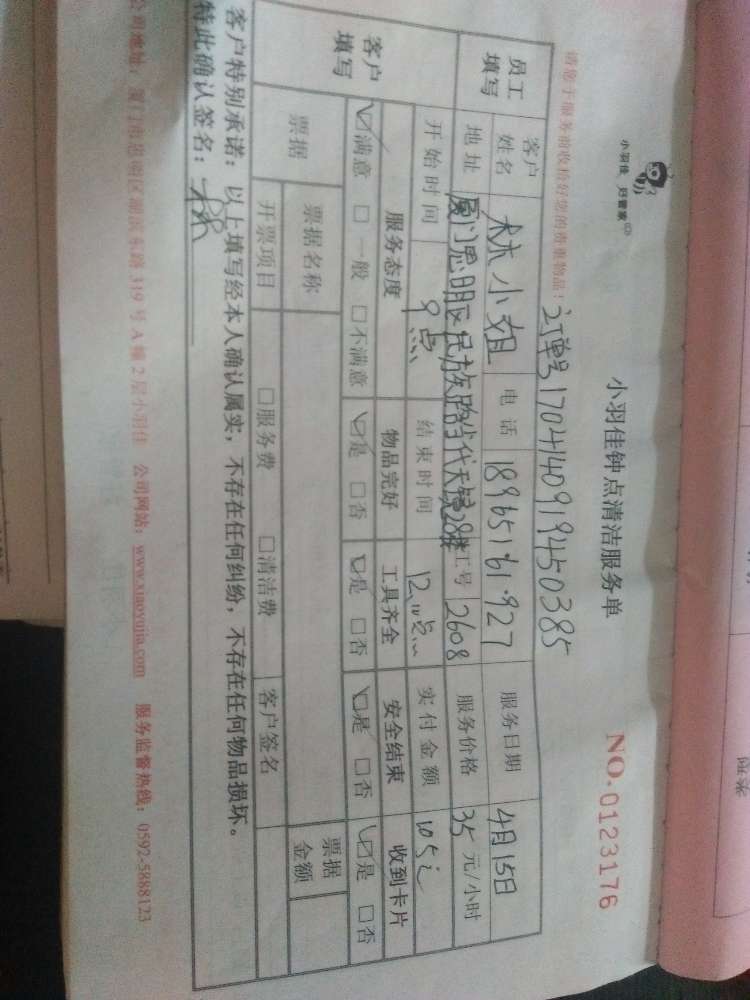 小羽佳 好管家
小羽佳钟点清洁服务单
NO.0123176
订单号170414091945038​5
请您于服务前收拾好您的贵重物品！
员工填写
客户姓名 林小姐 电话 18965161927 服务日期 4月15日
地址 厦门思明区民族路当代天境28楼 工号 2608 服务价格 35 元/小时
开始时间 9点 结束时间 12点 实付金额 105元
客户填写
服务态度 物品完好 工具齐全 安全结束 收到卡片
☑满意 □一般 □不满意 ☑是 □否 ☑是 □否 ☑是 □否 ☑是 □否
票据 票据名称 票据金额
开票项目 □服务费 □清洁费 客户签名
客户特别承诺：以上填写经本人确认属实，不存在任何纠纷，不存在任何物品损坏。
特此确认签名：
公司地址：厦门市思明区湖滨东路319号A幢2层小羽佳 公司网站：www.xiaoyujia.com 服务监督热线：0592-5888123